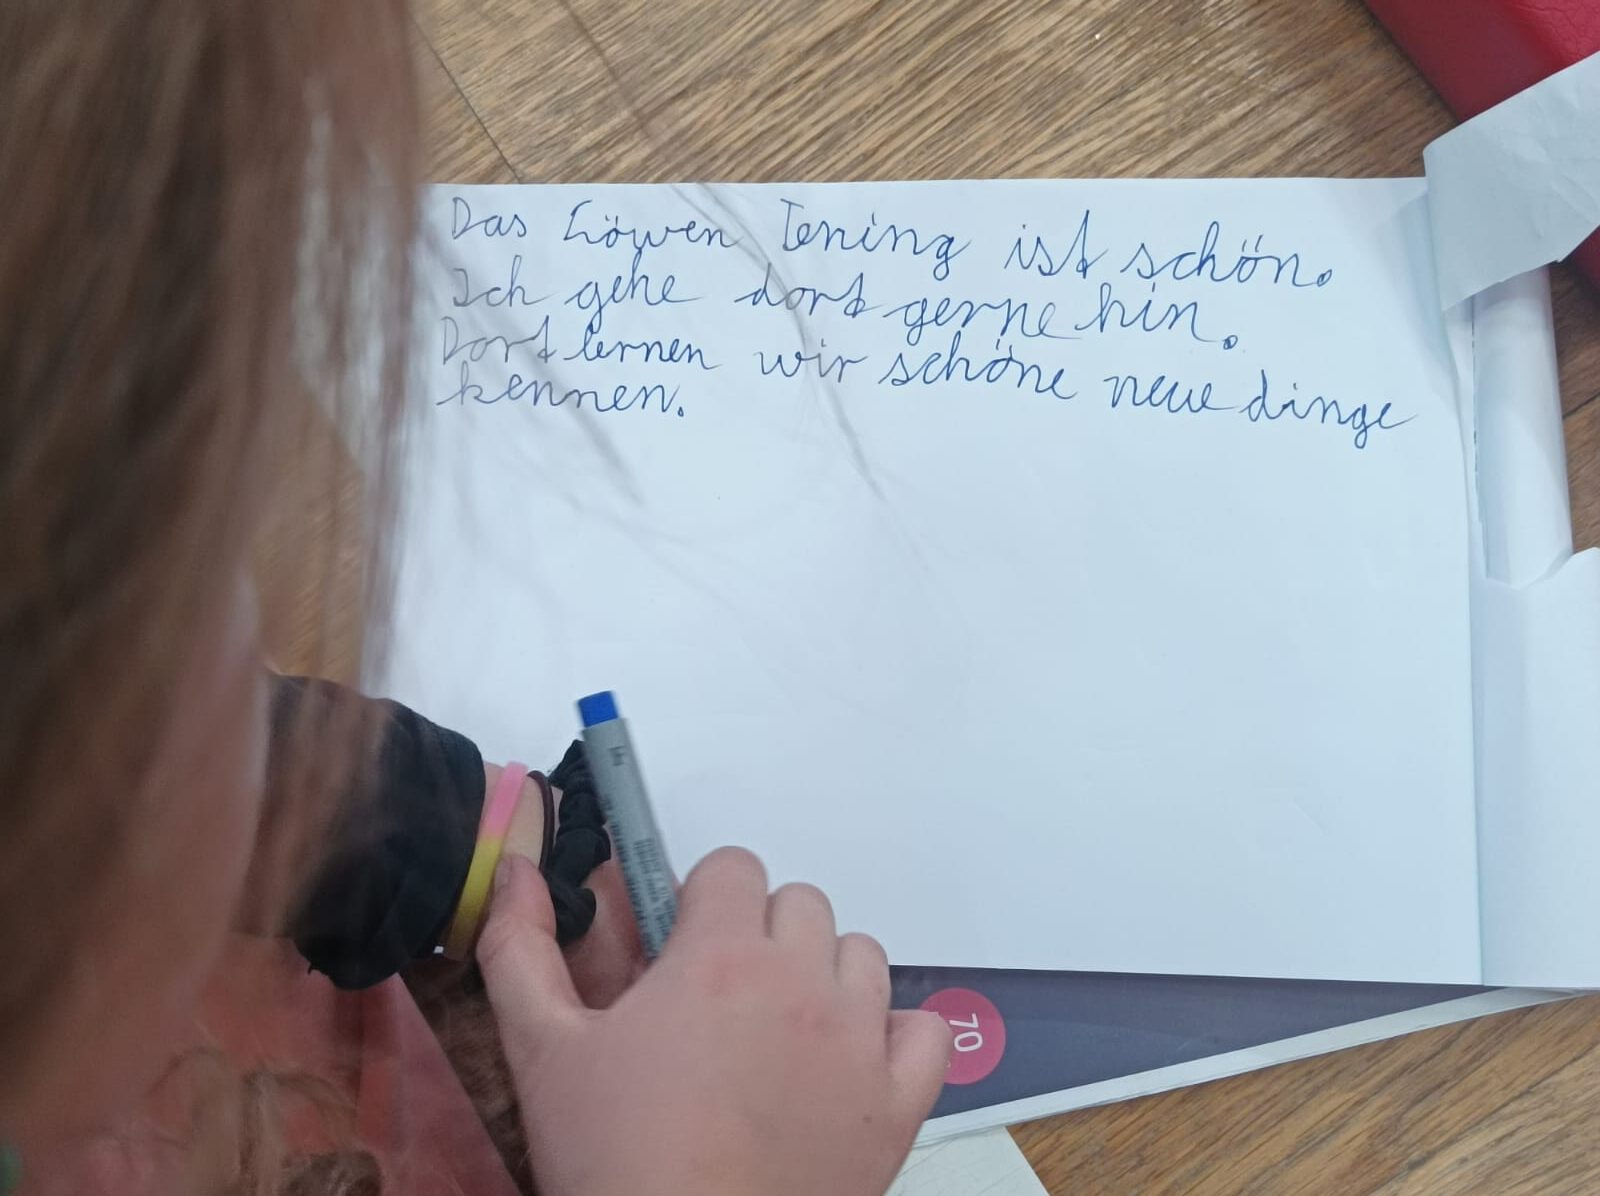 Das Löwen Tening ist schön.
Ich gehe dort gerne hin.
Dort lernen wir schöne neue dinge
kennen.
F
70